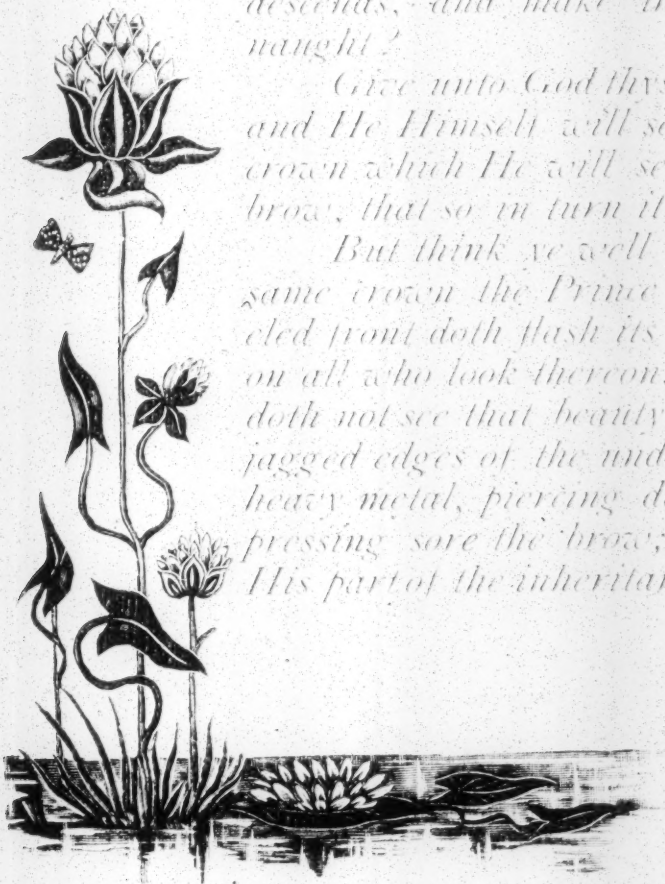 descends, and make
naught?
Give unto God thy
and He Himself will
crown which He will
brow, that so in turn it
But think ye well
same crown the Prince
eled front doth flash its
on all who look thereon
doth not see that beauty
jagged edges of the
heavy metal, piercing
pressing sore the brow;
His part of the